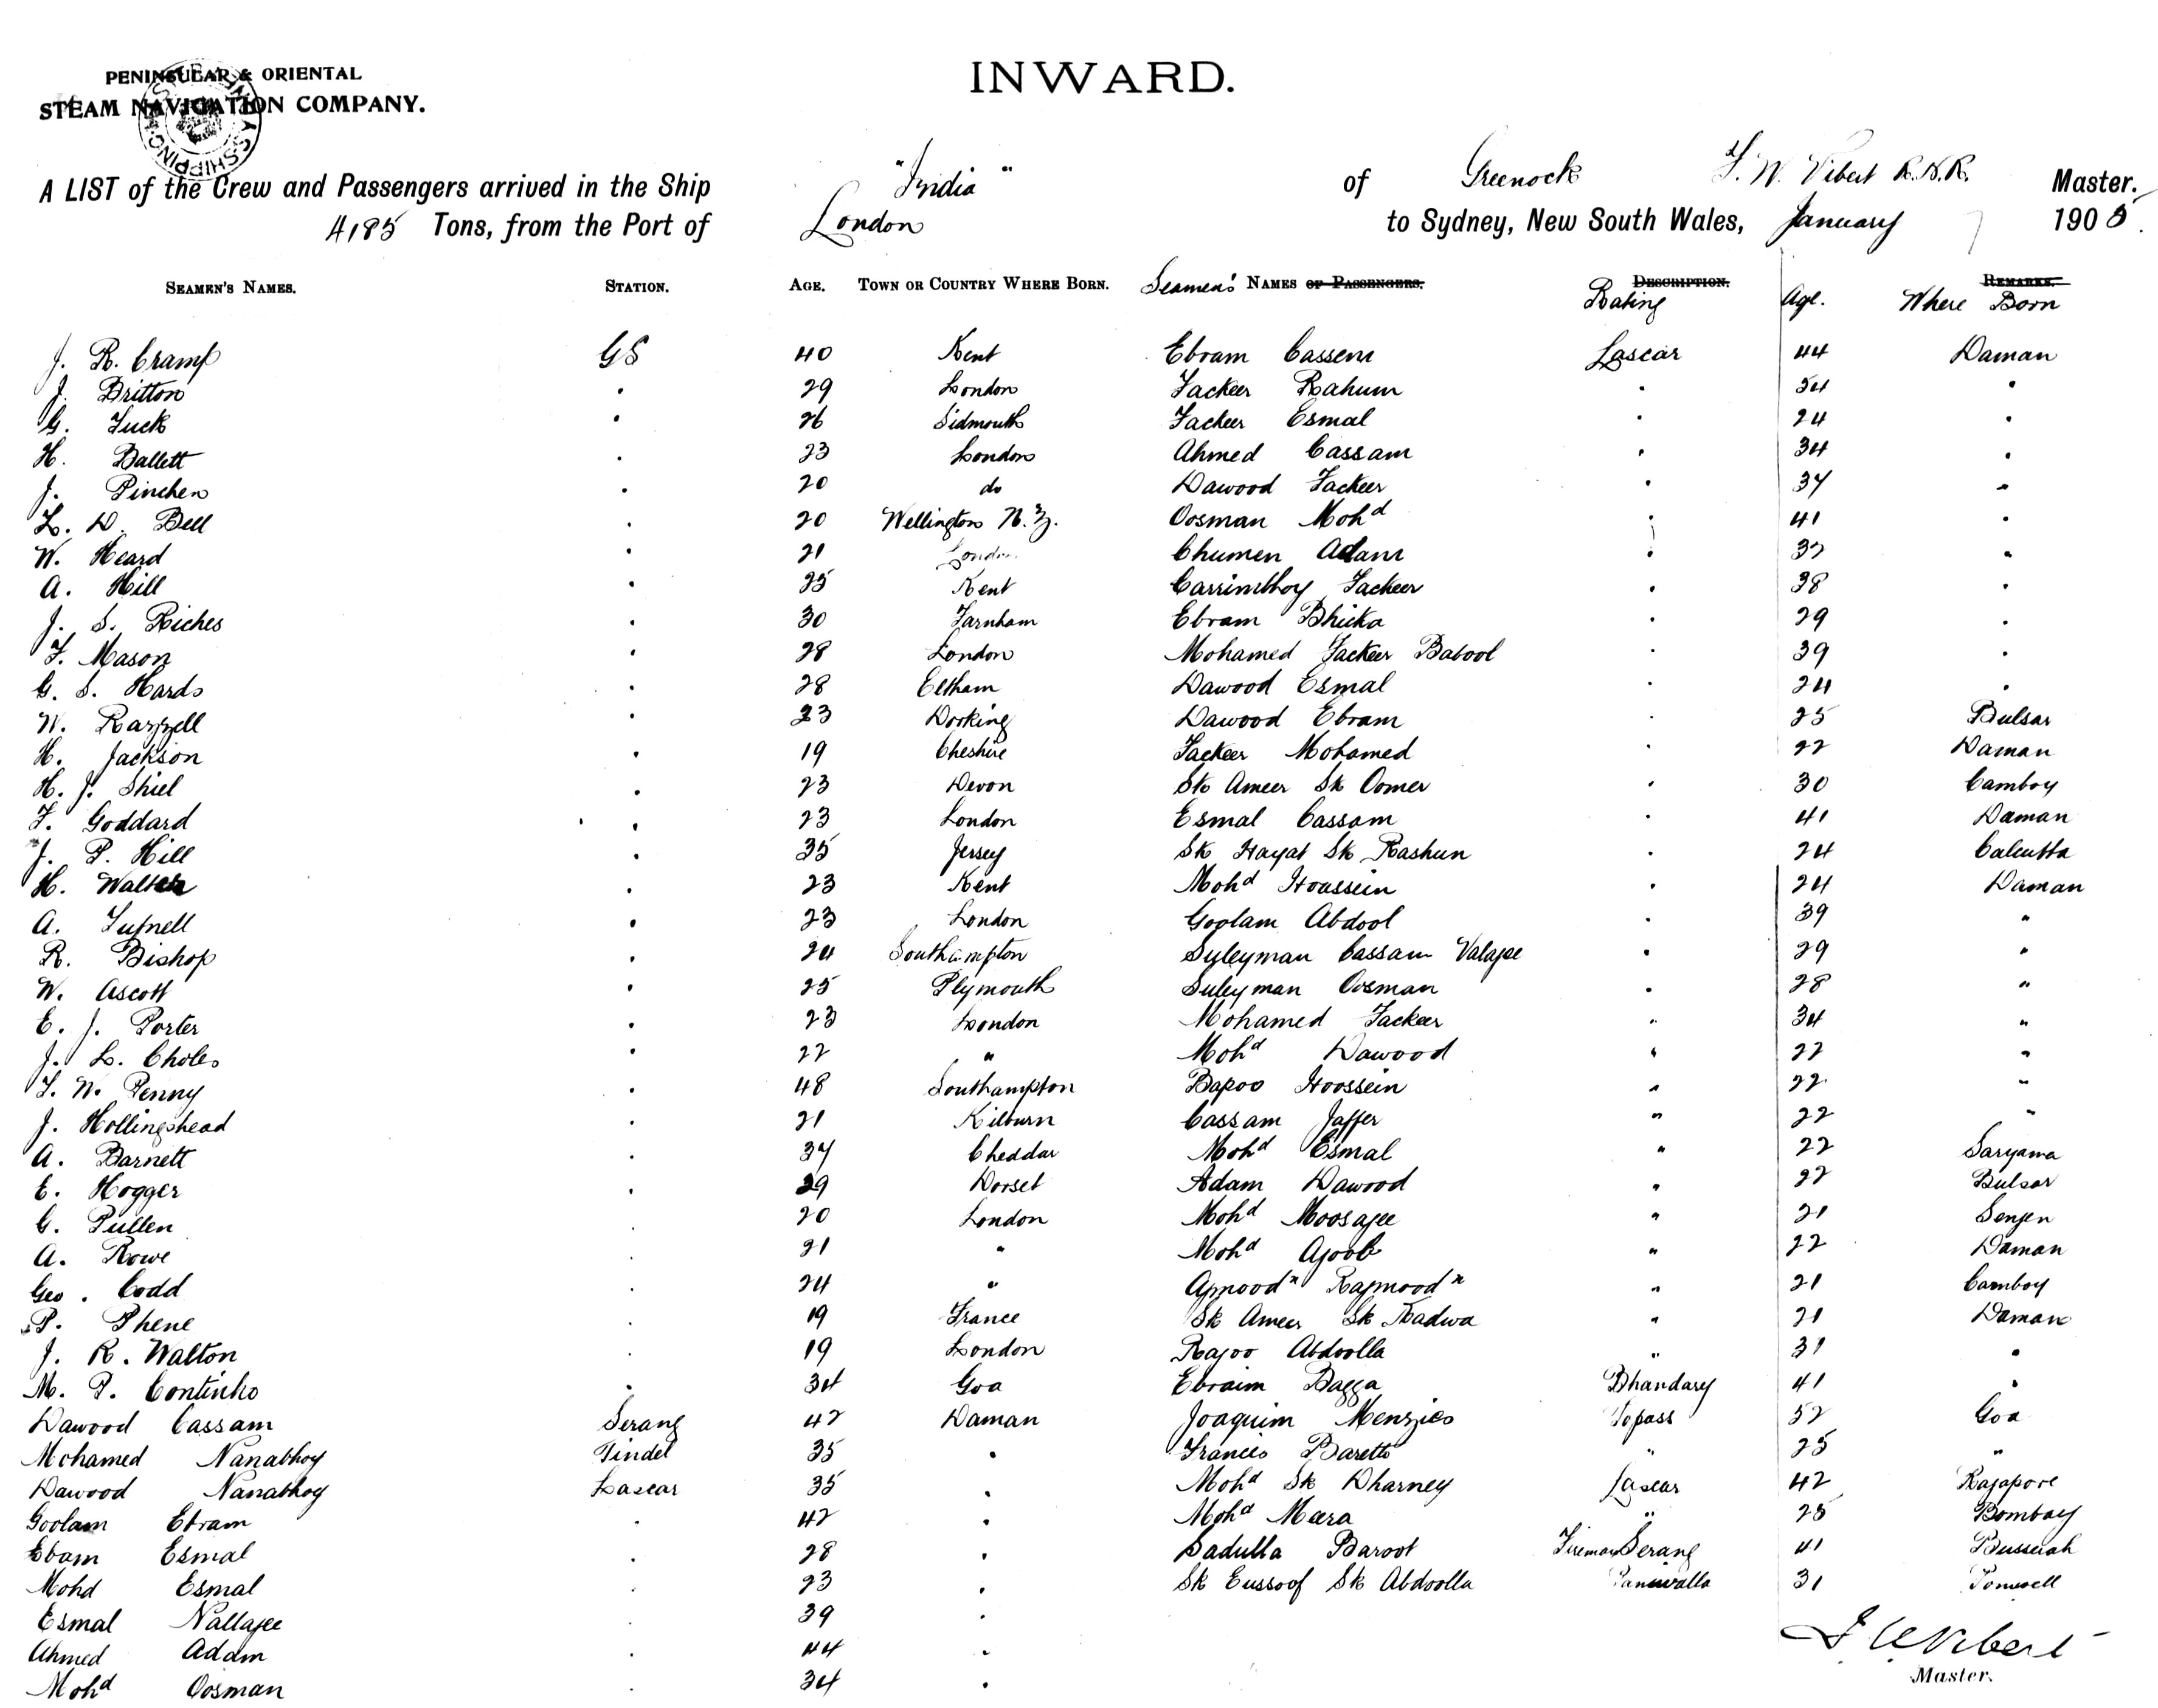 PENINSULAR & ORIENTAL
STEAM NAVIGATION COMPANY.
INWARD.
A LIST of the Crew and Passengers arrived in the Ship "India" of Greenock F. W. Vibert R.N.R. Master.
4185 Tons, from the Port of London to Sydney, New South Wales, January 7 1905.
SEAMEN'S NAMES. STATION. AGE. TOWN OR COUNTRY WHERE BORN. Seamen's NAMES OF PASSENGERS. DESCRIPTION. REMARKS.
Rating Age. Where Born
J. R. Cramp GS 40 Kent Ebram Cassem Lascar 44 Daman
J. Britton . 29 London Fackeer Rahum . 54 "
G. Tuck . 26 Sidmouth Fackeer Esmal . 24 "
H. Ballett . 23 London Ahmed Cassam . 34 "
J. Pinchen . 20 do Dawood Fackeer . 37 "
L. D. Bell . 20 Wellington N.Z. Oosman Mohd . 41 "
W. Heard . 21 London Chumen Adam . 32 "
A. Hill . 25 Kent Carrimbhoy Fackeer . 38 "
J. S. Riches . 30 Farnham Ebram Bhicka . 29 "
F. Mason . 28 London Mohamed Fackeer Babool . 39 "
G. S. Hards . 28 Eltham Dawood Esmal . 24 "
W. Razzell . 23 Dorking Dawood Ebram . 25 Bulsar
H. Jackson . 19 Cheshire Fackeer Mohamed . 22 Daman
H. J. Shiel . 23 Devon Sk Ameer Sk Oomer . 30 Camboy
F. Goddard . 23 London Esmal Cassam . 41 Daman
J. P. Hill . 35 Jersey Sk Hayat Sk Rashun . 24 Calcutta
H. Walter . 23 Kent Mohd Hoossein . 24 Daman
A. Tufnell . 23 London Goolam Abdool . 39 "
R. Bishop . 24 Southampton Suleyman Cassam Valajee . 29 "
W. Ascott . 25 Plymouth Suleyman Oosman . 28 "
E. J. Porter . 23 London Mohamed Fackeer " 34 "
J. L. Choles . 22 " Mohd Dawood " 22 "
F. W. Penny . 48 Southampton Bapoo Hoossein " 22 "
J. Hollingshead . 21 Kilburn Cassam Jaffer " 22 "
A. Barnett . 34 Cheddar Mohd Esmal " 22 Saryama
E. Hogger . 29 Dorset Adam Dawood " 22 Bulsar
G. Pullen . 20 London Mohd Moosajee " 21 Senjen
A. Rowe . 21 " Mohd Ajoob " 22 Daman
Geo. Codd . 24 " 21 Camboy
P. Phene . 19 France Sk Ameer Sk Badwa " 21 Daman
J. R. Walton . 19 London Rajoo Abdoolla " 31 "
M. P. Continho . 34 Goa Ebraim Bagga Bhandary 41 "
Dawood Cassam Serang 42 Daman Joaquim Menzies Topass 52 Goa
Mohamed Nanabhoy Tindel 35 " Francis Baretto " 25 "
Dawood Nanabhoy Lascar 35 " Mohd Sk Dharney Lascar 42 Rajapore
Goolam Ebram . 42 " Mohd Meera " 25 Bombay
Ebam Esmal . 28 " Sadulla Baroot Fireman Serang 41 Busserah
Mohd Esmal . 23 " Sk Eussoof Sk Abdoolla 31
Esmal Nallajee . 39 "
Ahmed Adam . 44 "
Mohd Oosman . 34 "
F W Vibert
Master.